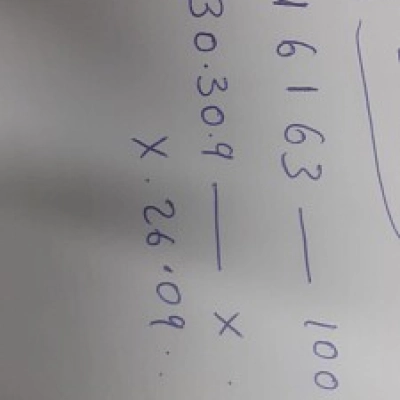 16163 — 100
30.30.9 — X
X . 26.09 . .